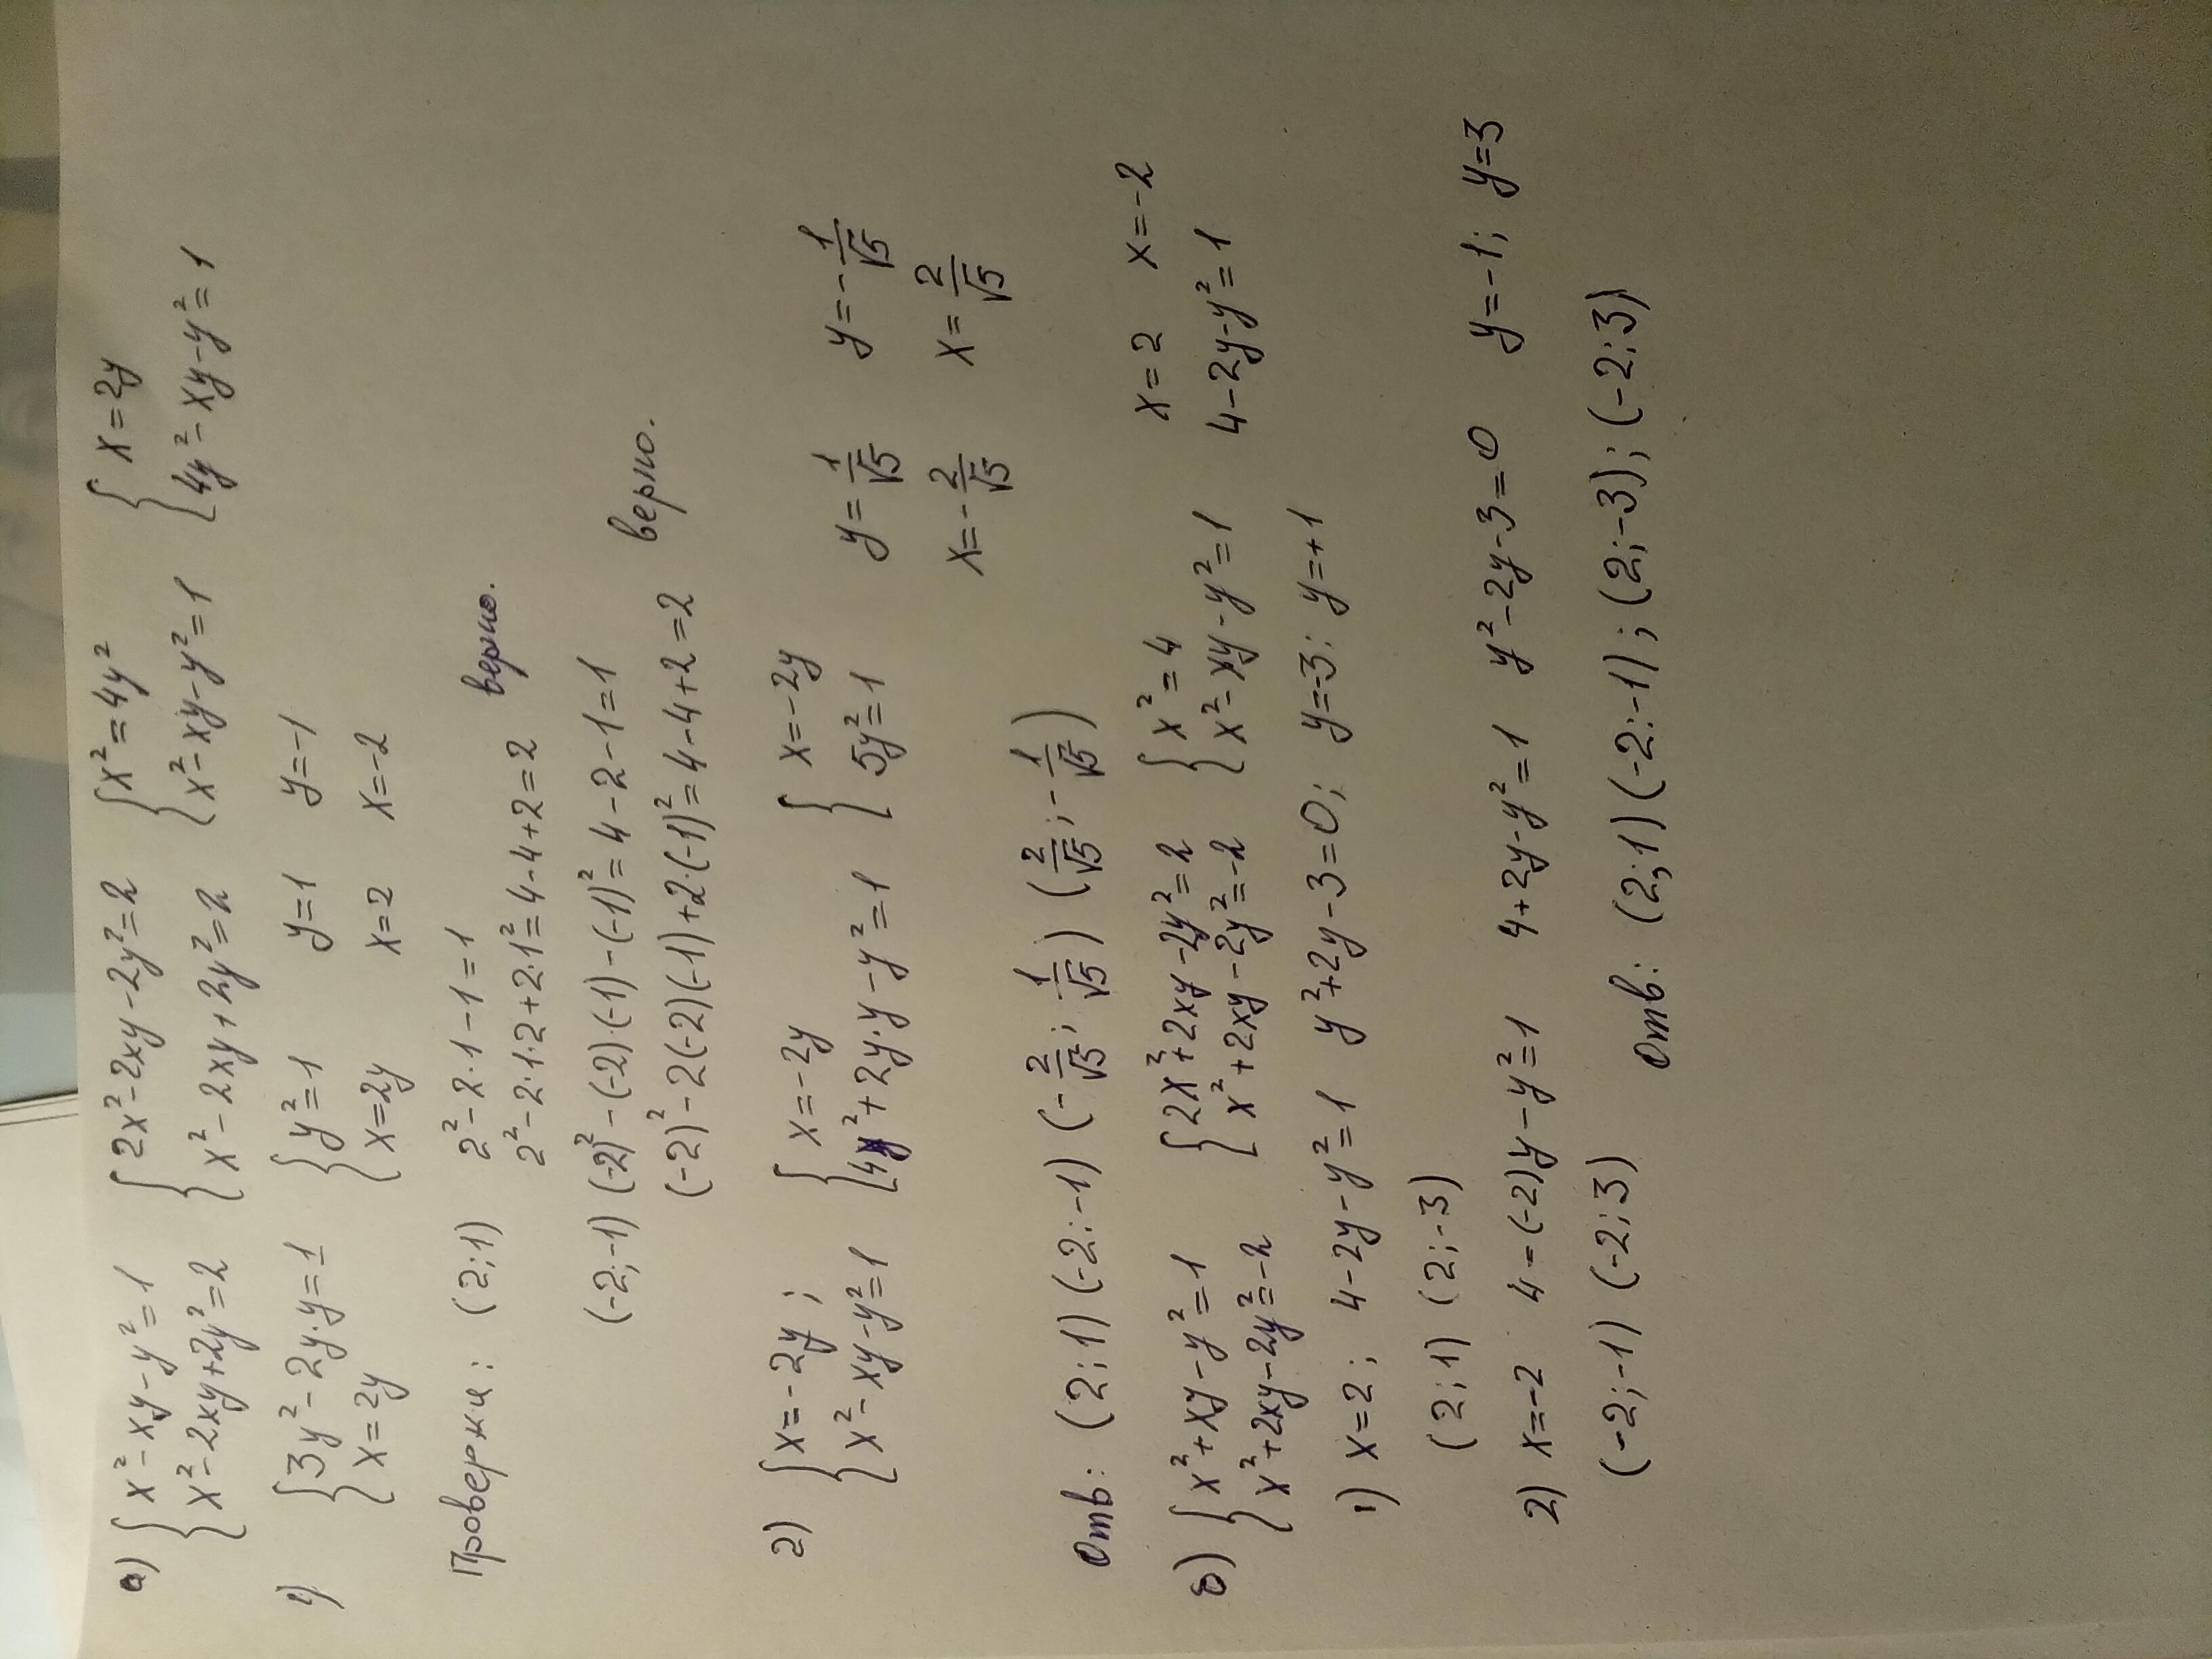 а) { x² - xy - y² = 1 { 2x² - 2xy - 2y² = 2 { x² = 4y² { x = 2y
{ x² - 2xy + 2y² = 2 { x² - 2xy + 2y² = 2 { x² - xy - y² = 1 { 4y² - xy - y² = 1
1) { 3y² - 2y·y = 1 { y² = 1 y = 1 y = -1
{ x = 2y { x = 2y x = 2 x = -2
Проверки: (2; 1) 2² - 2·1 - 1 = 1
2² - 2·1·2 + 2·1² = 4 - 4 + 2 = 2 верно.
(-2; -1) (-2)² - (-2)·(-1) - (-1)² = 4 - 2 - 1 = 1
(-2)² - 2(-2)(-1) + 2·(-1)² = 4 - 4 + 2 = 2 верно.
2) { x = -2y ; { x = -2y { x = -2y y = 1/√5 y = -1/√5
{ x² - xy - y² = 1 { 4y² + 2y·y - y² = 1 { 5y² = 1 x = -2/√5 x = 2/√5
Отв: (2; 1) (-2; -1) (-2/√5; 1/√5) (2/√5; -1/√5)
б) { x² + xy - y² = 1 { 2x² + 2xy - 2y² = 2 { x² = 4 x = 2 x = -2
{ x² + 2xy - 2y² = -2 { x² + 2xy - 2y² = -2 { x² - xy - y² = 1 4 - 2y - y² = 1
1) x = 2; 4 - 2y - y² = 1 y² + 2y - 3 = 0; y = -3; y = +1
(2; 1) (2; -3)
2) x = -2 4 - (-2)y - y² = 1 4 + 2y - y² = 1 y² - 2y - 3 = 0 y = -1; y = 3
(-2; -1) (-2; 3)
Отв: (2; 1) (-2; -1); (2; -3); (-2; 3)